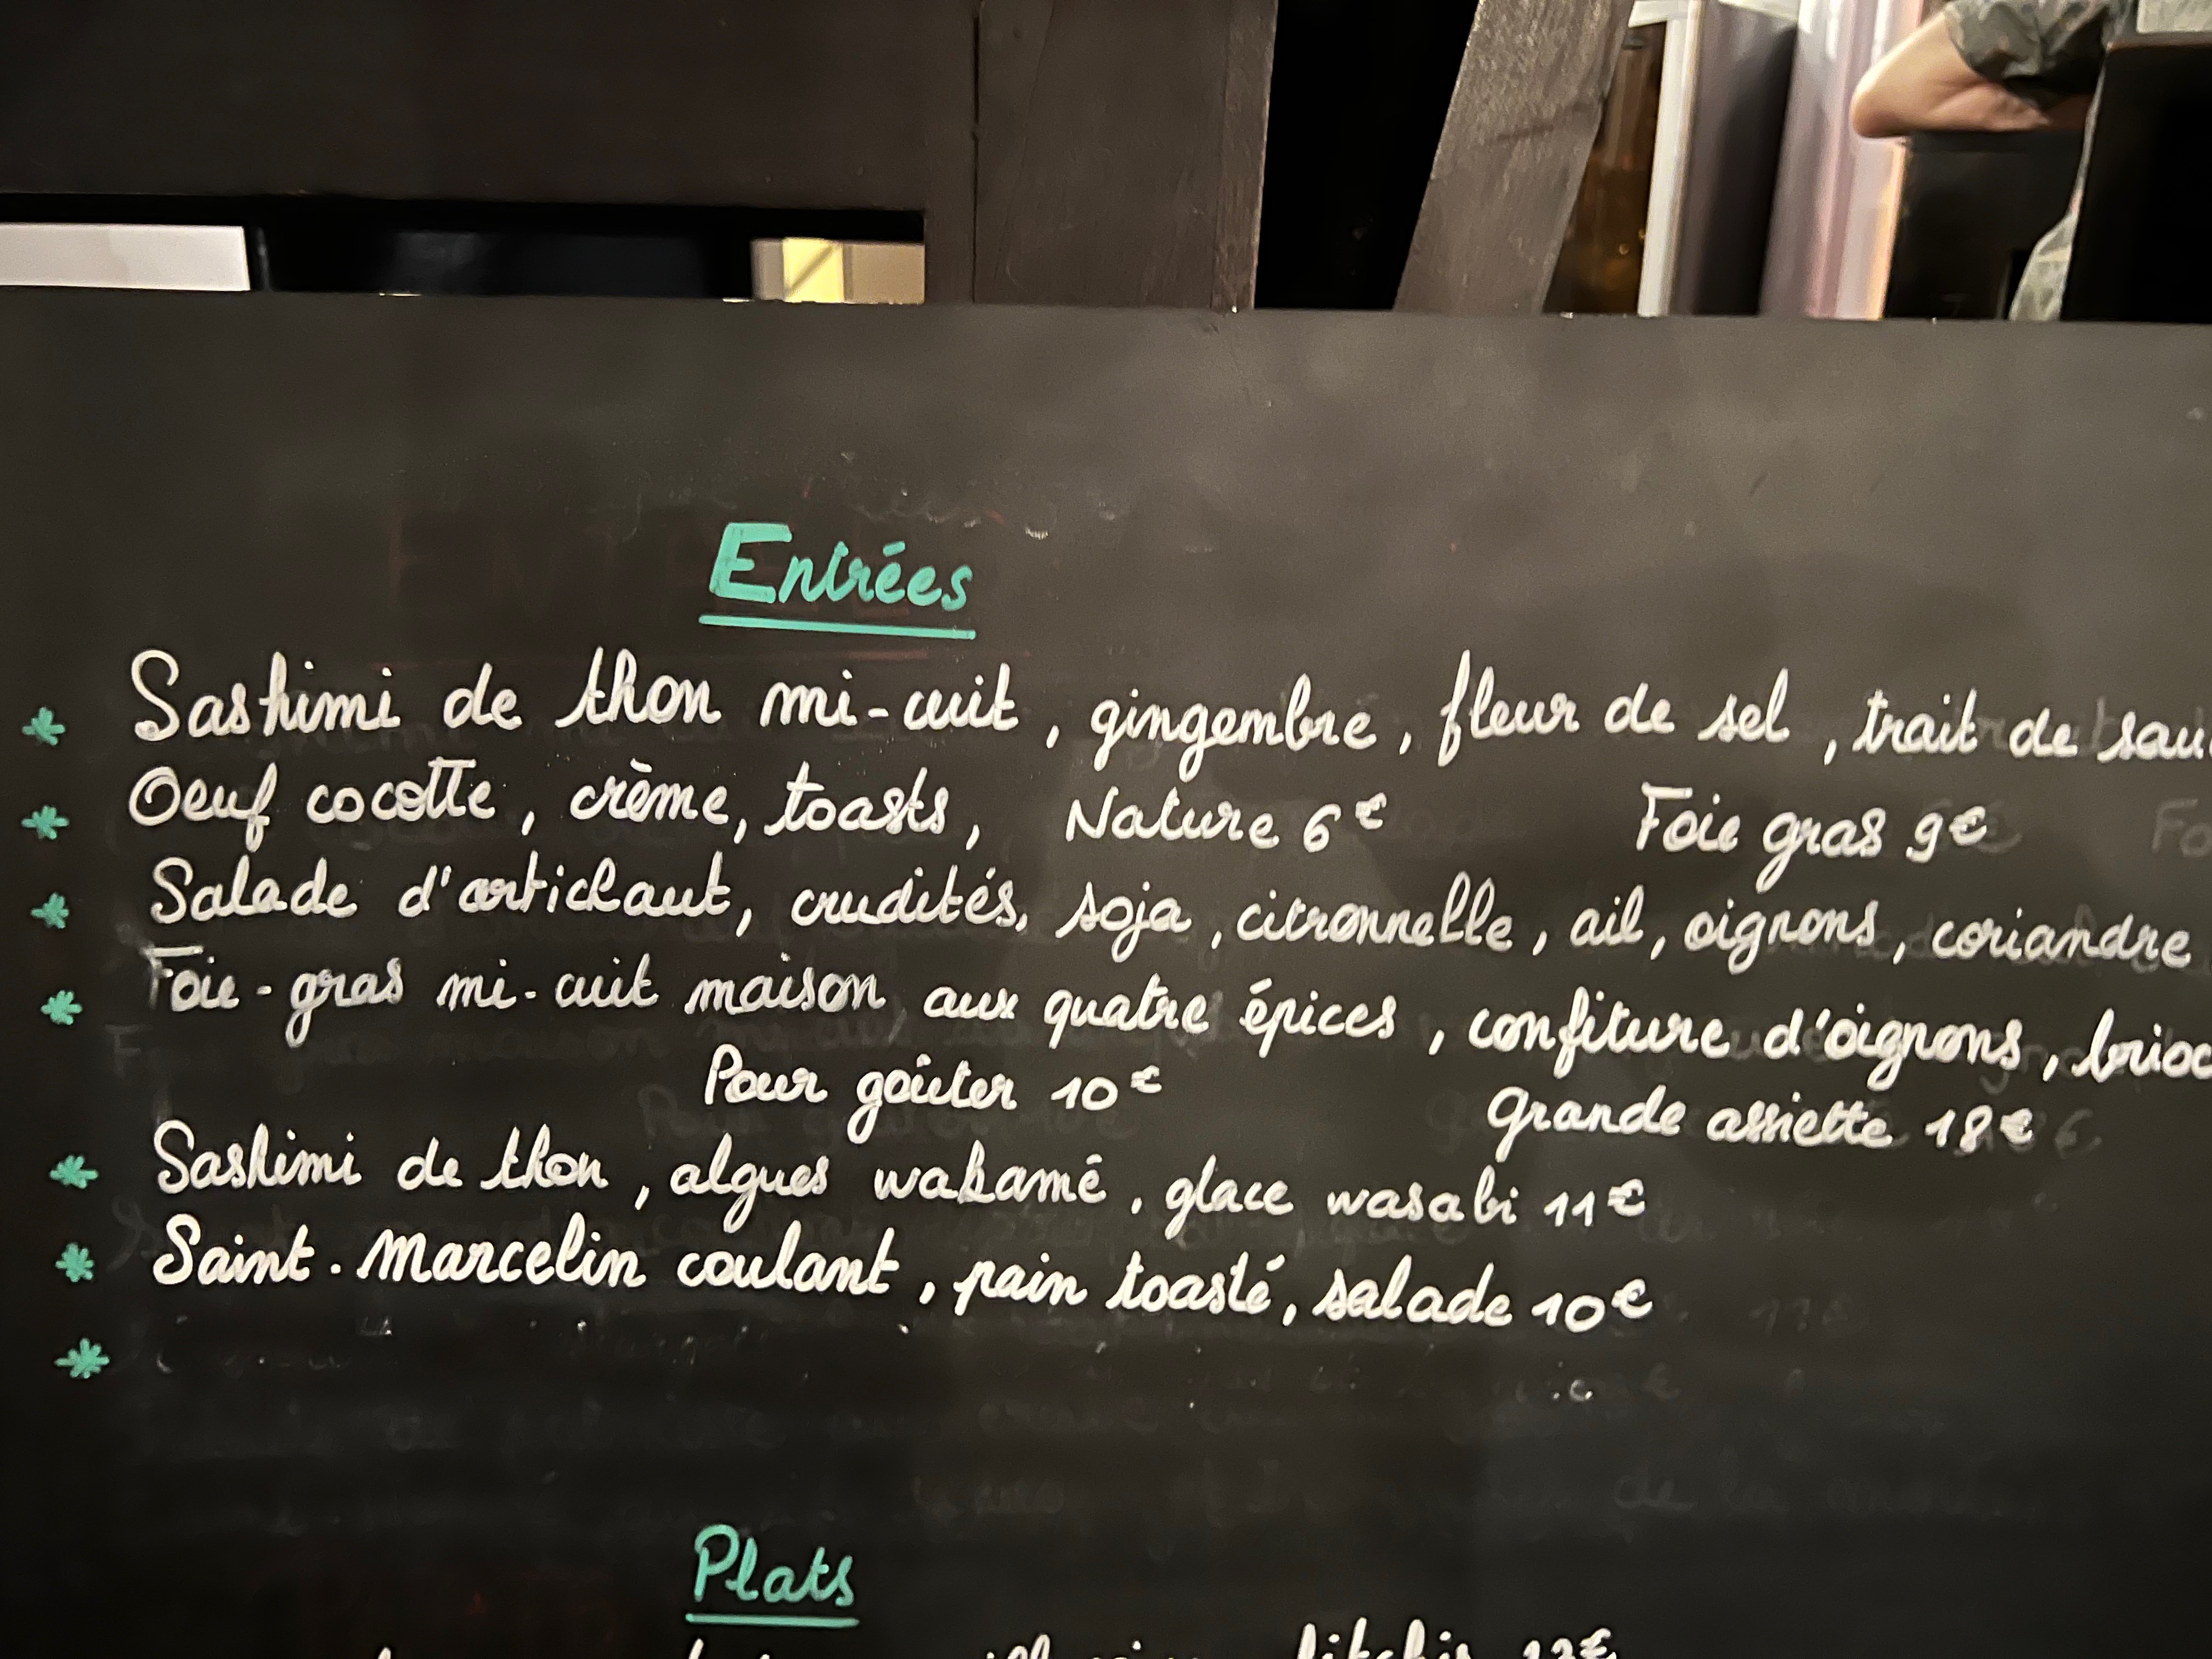 Entrées
* Sashimi de thon mi-cuit, gingembre, fleur de sel, trait de sau
* Oeuf cocotte, crème, toasts, Nature 6€ Foie gras 9€
* Salade d'artichaut, crudités, soja, citronnelle, ail, oignons, coriandre
* Foie-gras mi-cuit maison aux quatre épices, confiture d'oignons, brioc
Pour goûter 10€ Grande assiette 18€
* Sashimi de thon, algues wakamé, glace wasabi 11€
* Saint-Marcelin coulant, pain toasté, salade 10€
*
Plats